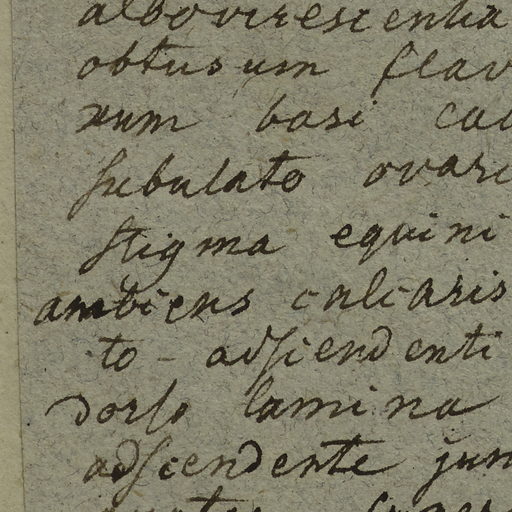 albovirescentia
obtusum flav
num basi cal
subulato ovari
stigma equini
ambiens calcaris
to - adscendenti
dorso lamina
adscendente jun